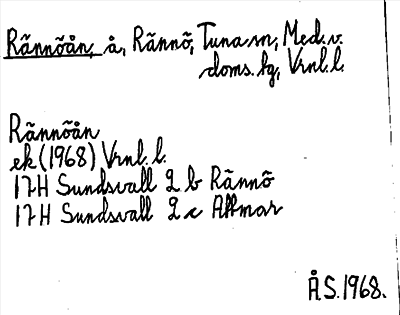 Rännöån, å, Rännö, Tuna sn, Med. v.
doms. hg, Vrnl. l.
Rännöån
ek (1968) Vrnl. l.
17H Sundsvall 2 b Rännö
17H Sundsvall 2 c Attmar
Å.S. 1968.